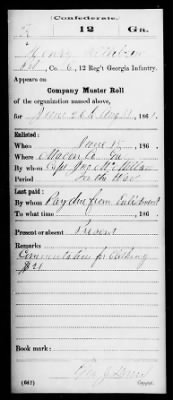 Confederate.
12 Ga.
Henry
Co. C, 12 Reg't Georgia Infantry.
Appears on
Company Muster Roll
of the organization named above,
for June 20 to Aug 31, 1861.
Enlisted:
When June 15, 186 .
Where Macon Co. Ga
By whom Capt
Period for the War
Last paid:
By whom Pay due from Enlistment
To what time , 186 .
Present or absent Present
Remarks:
Commutation for Clothing
$21
Book mark:
(642)
Copyist.